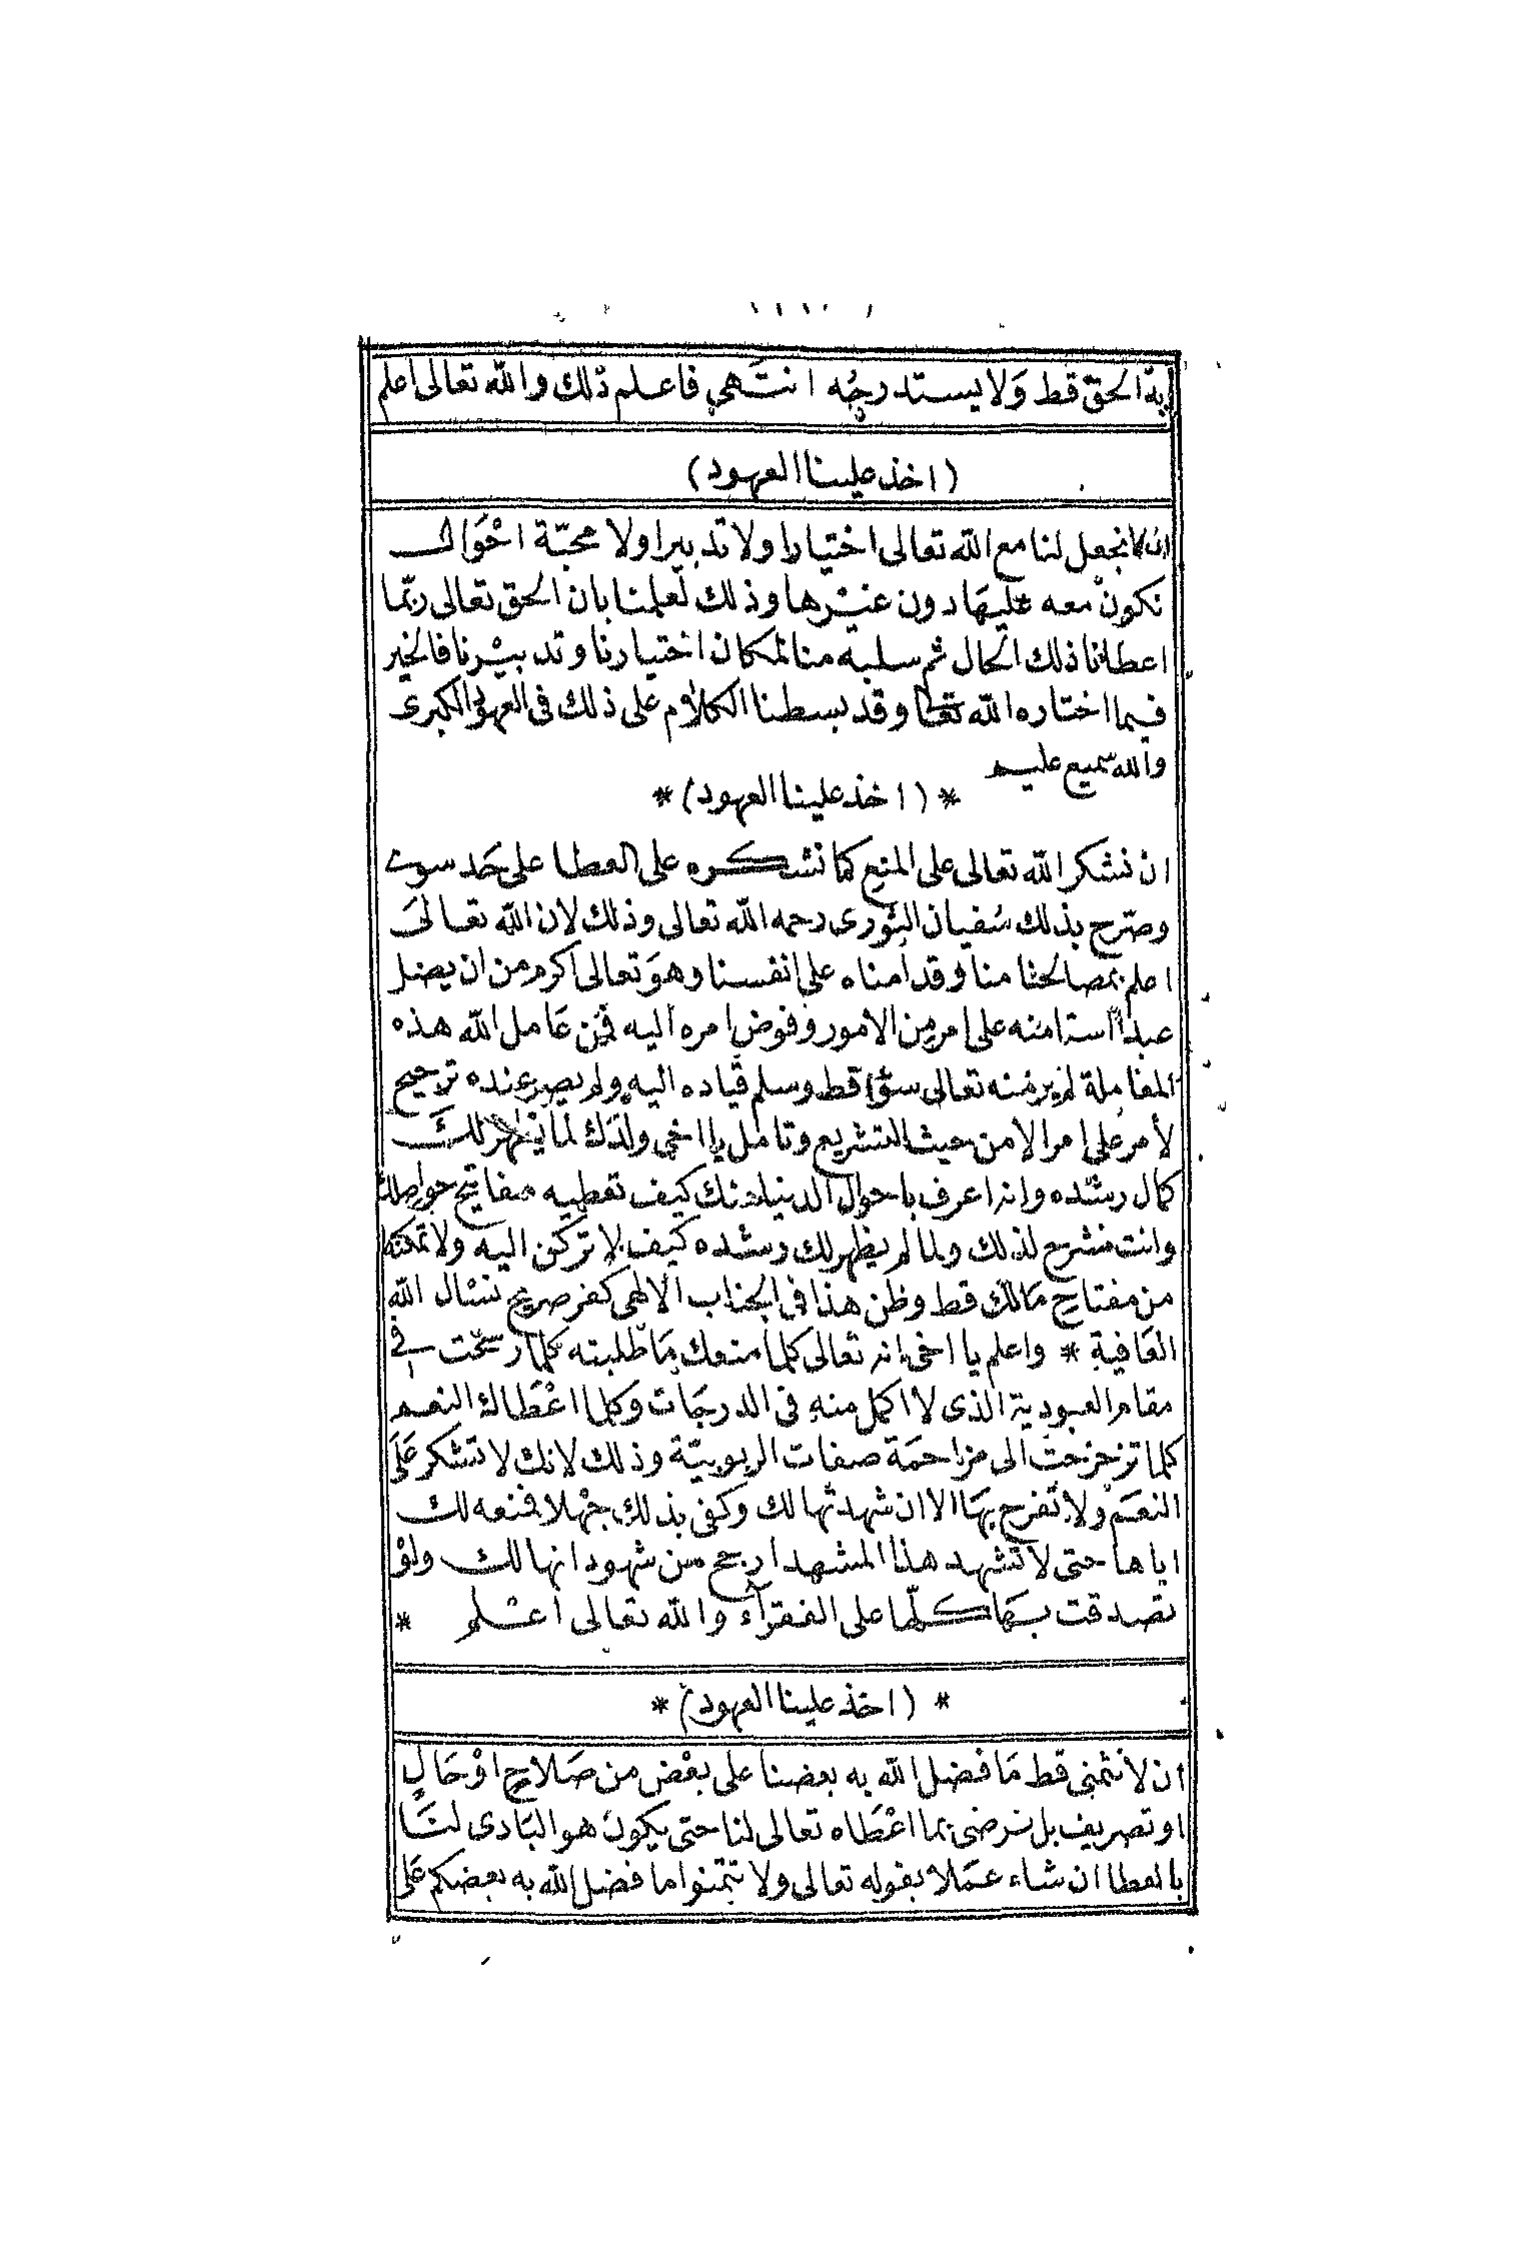 به الحق قط وَلا يستدرجُه انتَهى فاعلم ذلك والله تعالى اعلم
(اخذ علينا العهود)
ان لا نجعل لنا مع الله تعالى اختيارا ولا تدبيرا ولا محبّة احْوَال
نكونْ معه عليهَا دون غيْرها وذلك لعلمنا بان الحق تعالى ربّما
اعطانا ذلك الحال ثم سلبه منا لمكان اختيارنا وتدبيْرنا فالخير
فيما اختاره الله تعا وقد بسطنا الكلام على ذلك فى العهود الكبرى
والله سميع عليم
* (اخذ علينا العهود) *
ان نشكر الله تعالى على المنع كما نشكره على العطا على حَد سوى
وصّرح بذلك سُفيان الثورى رحمه الله تعالى وذلك لان الله تعالىَ
اعلم بمصالحنا منا وقد أمناه على انفسنا وهوَ تعالى اكرم من ان يضل
عبداً استامنه على امر من الامور وفوض امره اليه فمن عَامل الله هذه
المعاملة لم ير منه تعالى سؤا قط وسلم قياده اليه ولم يصر عنده ترجيح
لأمر على امر الا من حيث التشريع وتامل يا اخى ولدَك لما يظهر لكَ
كمال رشده وانه اعرف باحوال الدنيا منك كيف تعطيه مفاتيح حواصلك
وانت منشرح لذلك ولما لم يظهر لك رشده كيف لا تركن اليه ولا تمكنه
من مفتاح مَالك قط وظن هذا فى الجناب الالهى كفر صريح نسال الله
العَافية * واعلم يا اخى انه تعالى كلما منعك مَا طلبته كلما رسخت فى
مقام العبودية الذى لا اكمل منه فى الدرجَات وكلما اعْطَاك النعم
كلما تزحزحت الى مزاحمَة صفات الربوبيّة وذلك لانك لا تشكر عَلىَ
النعَم ولا تفرح بهَا الا ان شهدتها لك وكفى بذلك جهْلا فمنعه لك
اياها حتى لا تشهد هذا المشهد ارجح من شهود انها لك ولوْ
تصدقت بهَا كلّها على الفقرآء والله تعالى اعْلم *
* (اخذ علينا العهود) *
ان لا نتمنى قط مَا فضل الله به بعضنا على بعْض من صَلاح اوْ حَالٍ
او تصريف بل نرضى بما اعْطَاه تعالى لنا حتى يكون هو البَادى لنَا
بالعطا ان شاء عمَلا بقوله تعالى ولا تتمنوا ما فضل الله به بعضكم عَلى